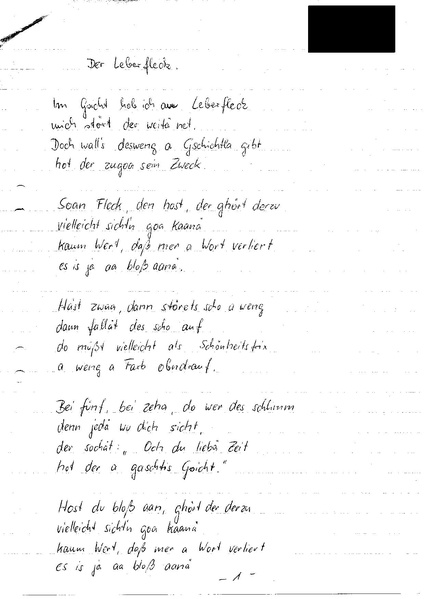 Der Leberfleck.
Im Gsicht hob ich an Leberfleck
mich stört der weitä net.
Doch wall's desweng a Gschichtla gibt
hot der sogoa sein Zweck.
Soan Fleck, den host, der ghört derzu
vielleicht sicht'n goa kaanä
kaum Wert, daß mer a Wort verliert
es is ja aa bloß aanä.
Häst zwaa, dann störets scho a weng
dann fallät des scho auf
do müßt vielleicht als Schönheitsfix
a weng a Farb obndrauf.
Bei fünf, bei zeha, do wer des schlimm
denn jedä wu dich sicht,
der sochät: „Och du liebä Zeit
hot der a gaschtis Gsicht."
Host du bloß aan, ghört der derzu
vielleicht sicht'n goa kaanä
kaum Wert, daß mer a Wort verliert
es is ja aa bloß aanä
- 1 -